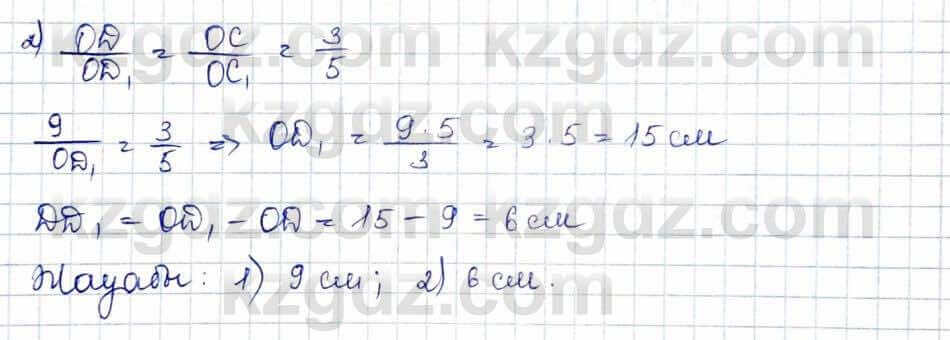 2) OD/OD₁ = OC/OC₁ = 3/5
9/OD₁ = 3/5 => OD₁ = 9·5/3 = 3·5 = 15 см
DD₁ = OD₁ - OD = 15 - 9 = 6 см
Жауабы: 1) 9 см; 2) 6 см.
kzgdz.com kzgdz.com
kzgdz.com kzgdz.com
kzgdz.com kzgdz.com
kzgdz.com kzgdz.com